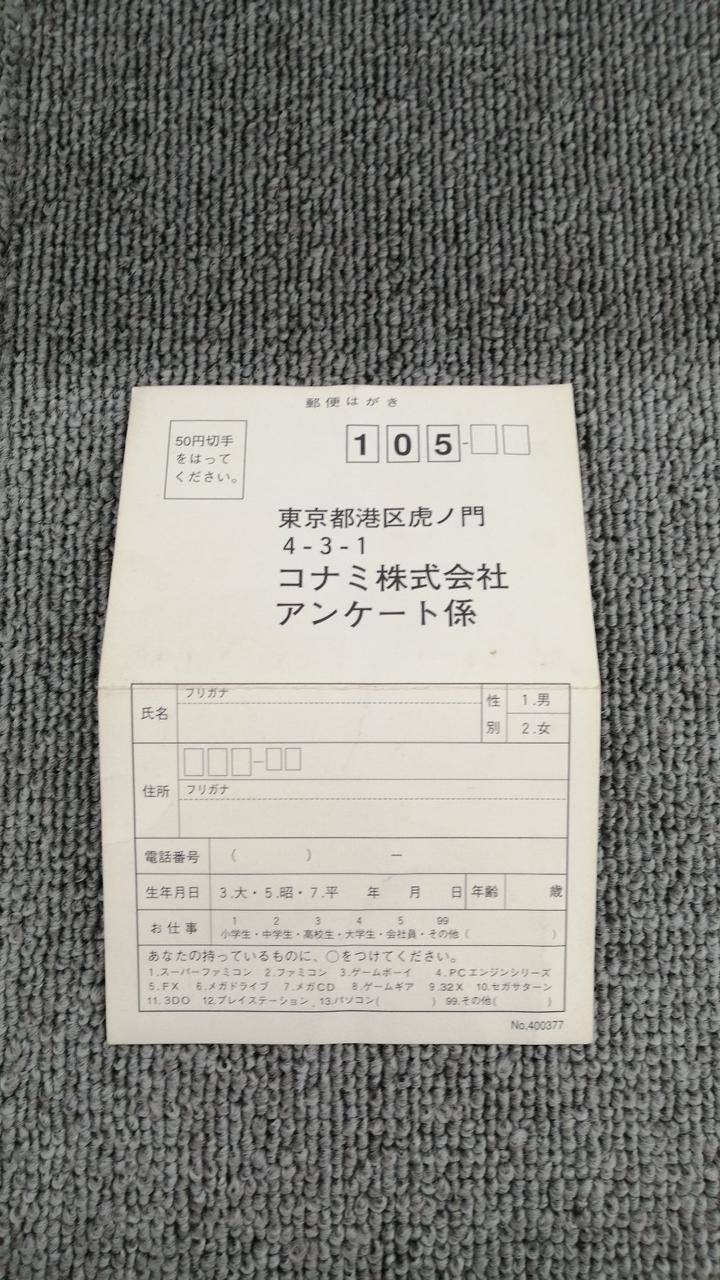 郵便はがき
50円切手
をはって
ください。
105-
東京都港区虎ノ門
4-3-1
コナミ株式会社
アンケート係
氏名 フリガナ 性別 1.男
2.女
住所 -
フリガナ
電話番号 ( ) ー
生年月日 3.大・5.昭・7.平 年 月 日 年齢 歳
お仕事 1 2 3 4 5 99
小学生・中学生・高校生・大学生・会社員・その他( )
あなたの持っているものに、○をつけてください。
1.スーパーファミコン 2.ファミコン 3.ゲームボーイ 4.PCエンジンシリーズ
5.FX 6.メガドライブ 7.メガCD 8.ゲームギア 9.32X 10.セガサターン
11.3DO 12.プレイステーション 13.パソコン( ) 99.その他( )
No.400377